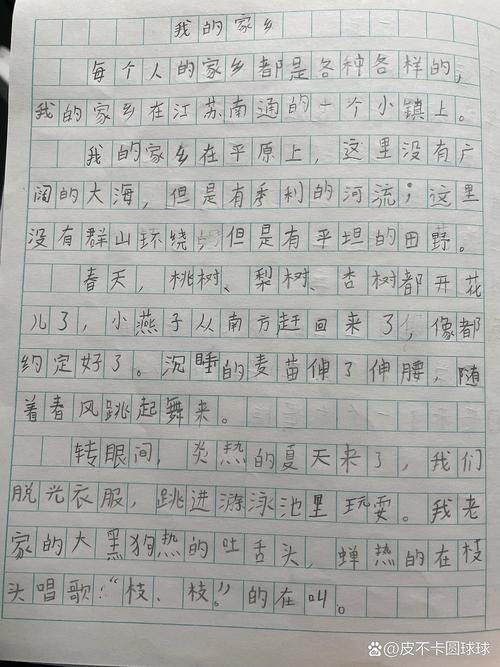 我的家乡
每个人的家乡都是各种各样的,
我的家乡在江苏南通的一个小镇上。
我的家乡在平原上，这里没有广
阔的大海，但是有秀利的河流；这里
没有群山环绕但是有平坦的田野。
春天，桃树、梨树、杏树都开花
儿了，小燕子从南方赶回来了，像都
约定好了。沉睡的麦苗伸了伸腰，随
着春风跳起舞来。
转眼间，炎热的夏天来了，我们
脱光衣服，跳进游泳池里玩耍。我老
家的大黑狗热的吐舌头，蝉热的在枝
头唱歌：“枝、枝。”的在叫。
@皮不卡圆球球